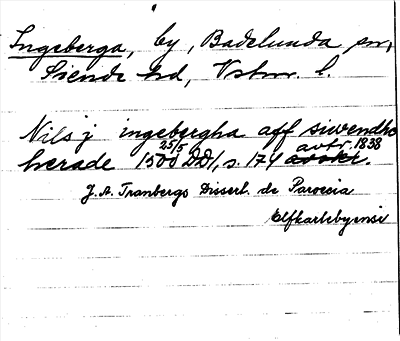 Ingeberga, by, Badelunda sn,
Siende hd, Vstm. l.
Nils j ingebergha aff siwendhe
herade 1500 25/5 DD1, s. 174 avskr. avtr. 1838
J. A. Tranbergs Dissert. de Paroecia
Elfkarlebyensi